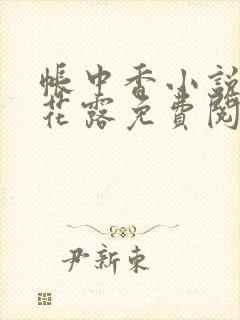 帳中香小說
花露免費閱
尹新東